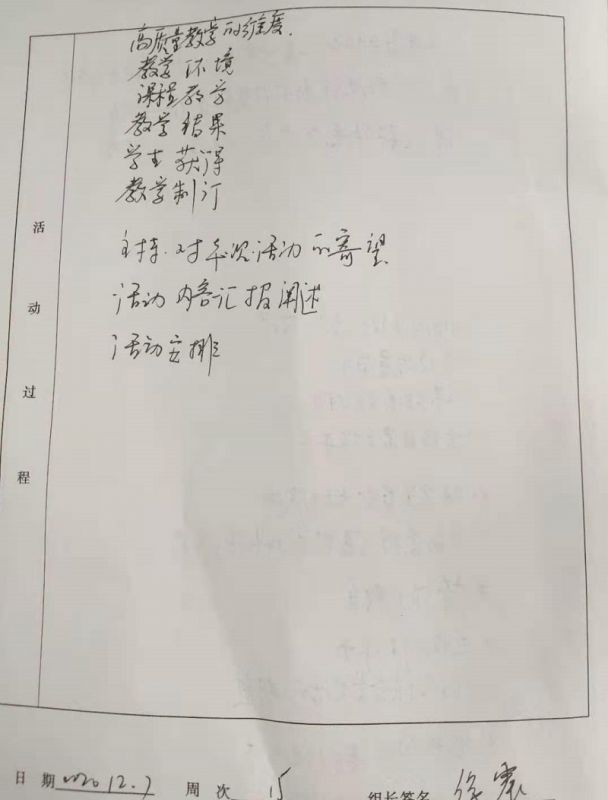 高质量教学的维度.
教学环境
课程教学
教学结果
学生获得
教学制订
活动过程
主持.对本次活动的寄望
活动内容汇报阐述
活动安排
日期 2020.12.7 周次 15 组长签名 徐